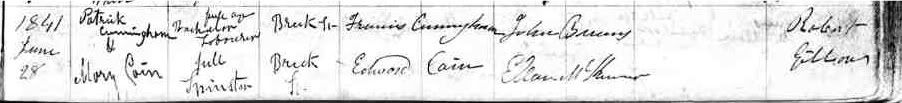 1841 Patrick full age Breck St. Francis Cunningham John Burns Robert
Cunningham Bachelor
& Labourer
June
28 Mary Cain full Breck Edward Cain Gibson
Spinster St.